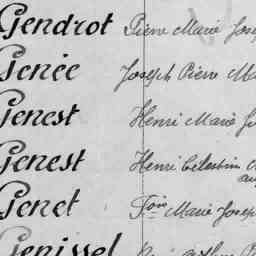 Gendrot Pierre Marie Jose
Genée Joseph Pierre Ma
Genest Henri Marie
Genest Henri Célestin
Genet Fois Marie Joseph
Genissel